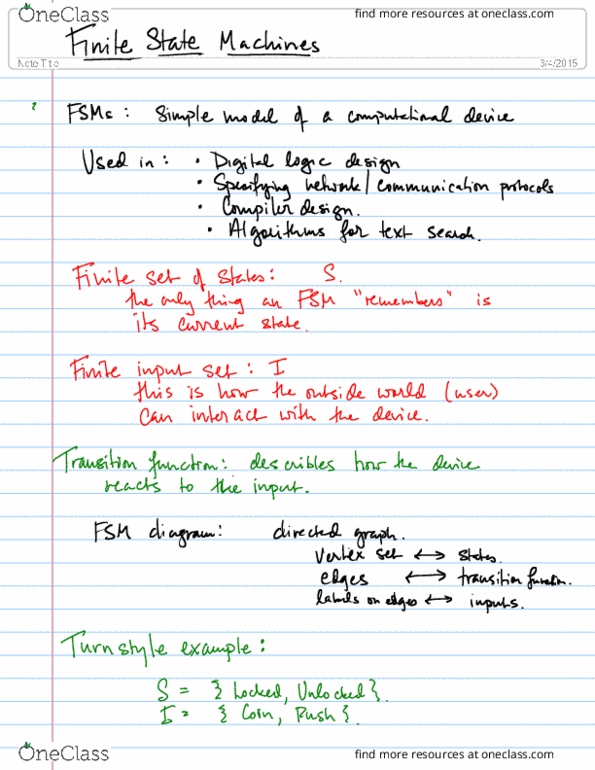 OneClass
find more resources at oneclass.com
Finite State Machines
Note Title
3/4/2015
FSMs: Simple model of a computational device
Used in: • Digital logic design
• Specifying network/communication protocols
• Compiler design.
• Algorithms for text search.
Finite set of states: S.
the only thing an FSM "remembers" is
its current state.
Finite input set: I
this is how the outside world (user)
can interact with the device.
Transition function: describles how the device
reacts to the input.
FSM diagram: directed graph.
vertex set ↔ states.
edges ↔ transition function.
labels on edges ↔ inputs.
Turnstyle example:
S = { Locked, Unlocked}.
I = { Coin, Push}.
OneClass
find more resources at oneclass.com